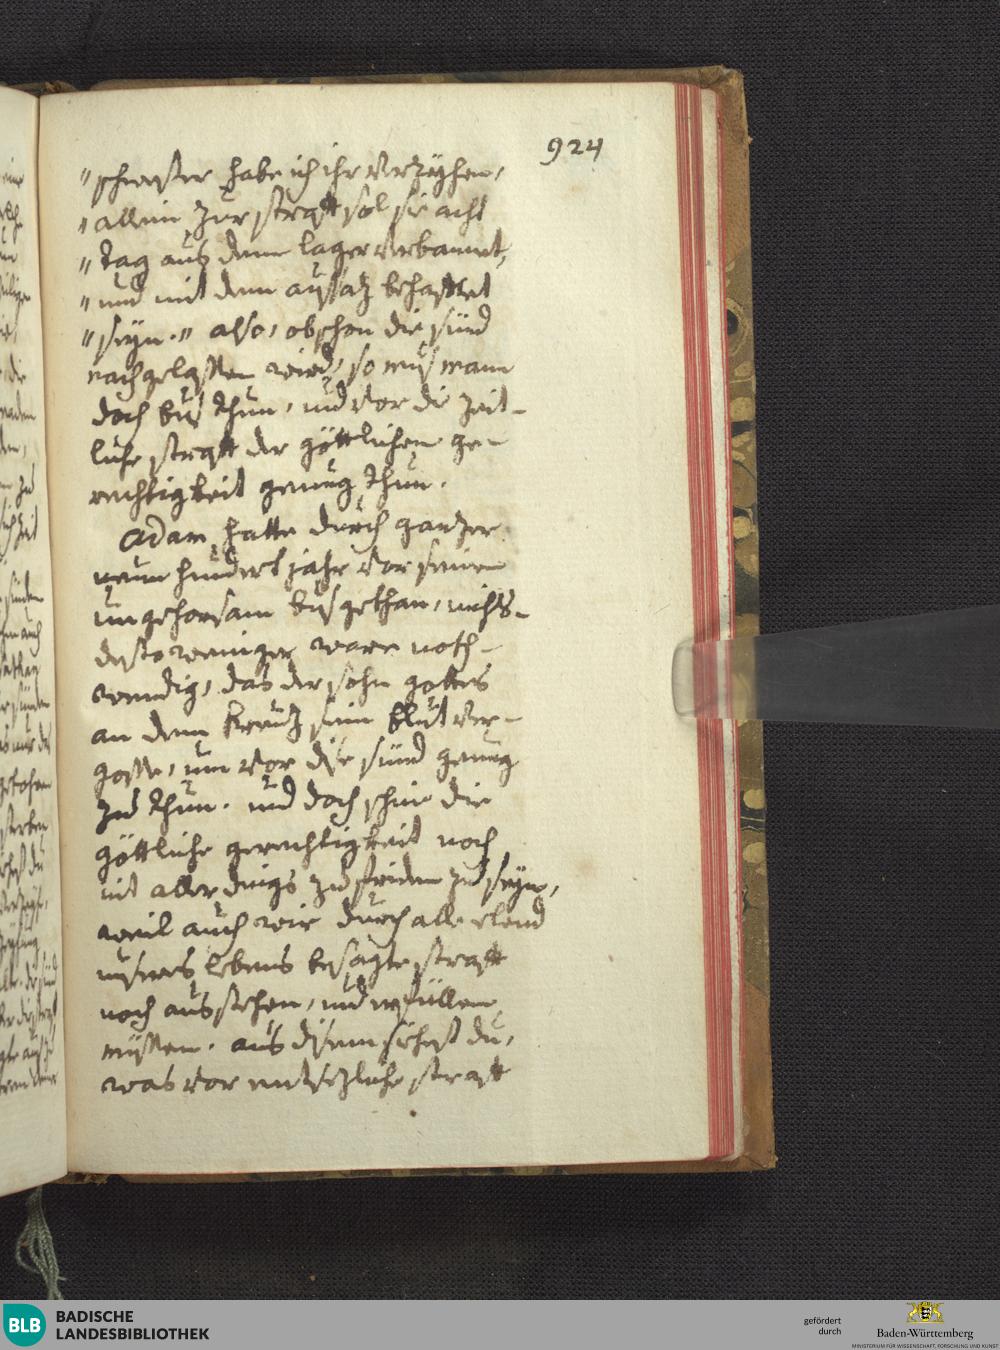 924
"schwester habe ich ihr verzyhen,
"allein zur straff sol sie acht
"tag aus dem lager verbannet,
"und mit dem aussaz behafftet
"seyn." also, obschon die sünd
nachgelassen wird, so mus mann
doch bus thun, und vor die zeit-
liche straff der göttlichen ge-
rechtigkeit genug thun.
Adam hatte durch ganzer
neun hundert jahr vor seinen
ungehorsam bus gethan, nichts-
desto weniger ware noth-
wendig, das der sohn gottes
an dem kreuz sein blut ver-
gosse, um vor dise sünd genug
zu thun. und doch schine die
göttliche gerechtigkeit noch
nit aller dings zu friden zu seyn,
weil auch wir durch alle elend
unsers lebens besagte straff
noch ausstehen, und erfüllen
müssen. aus disem sihest du,
was vor entsezliche straff
BLB BADISCHE
LANDESBIBLIOTHEK
gefördert
durch
Baden-Württemberg
MINISTERIUM FÜR WISSENSCHAFT, FORSCHUNG UND KUNST